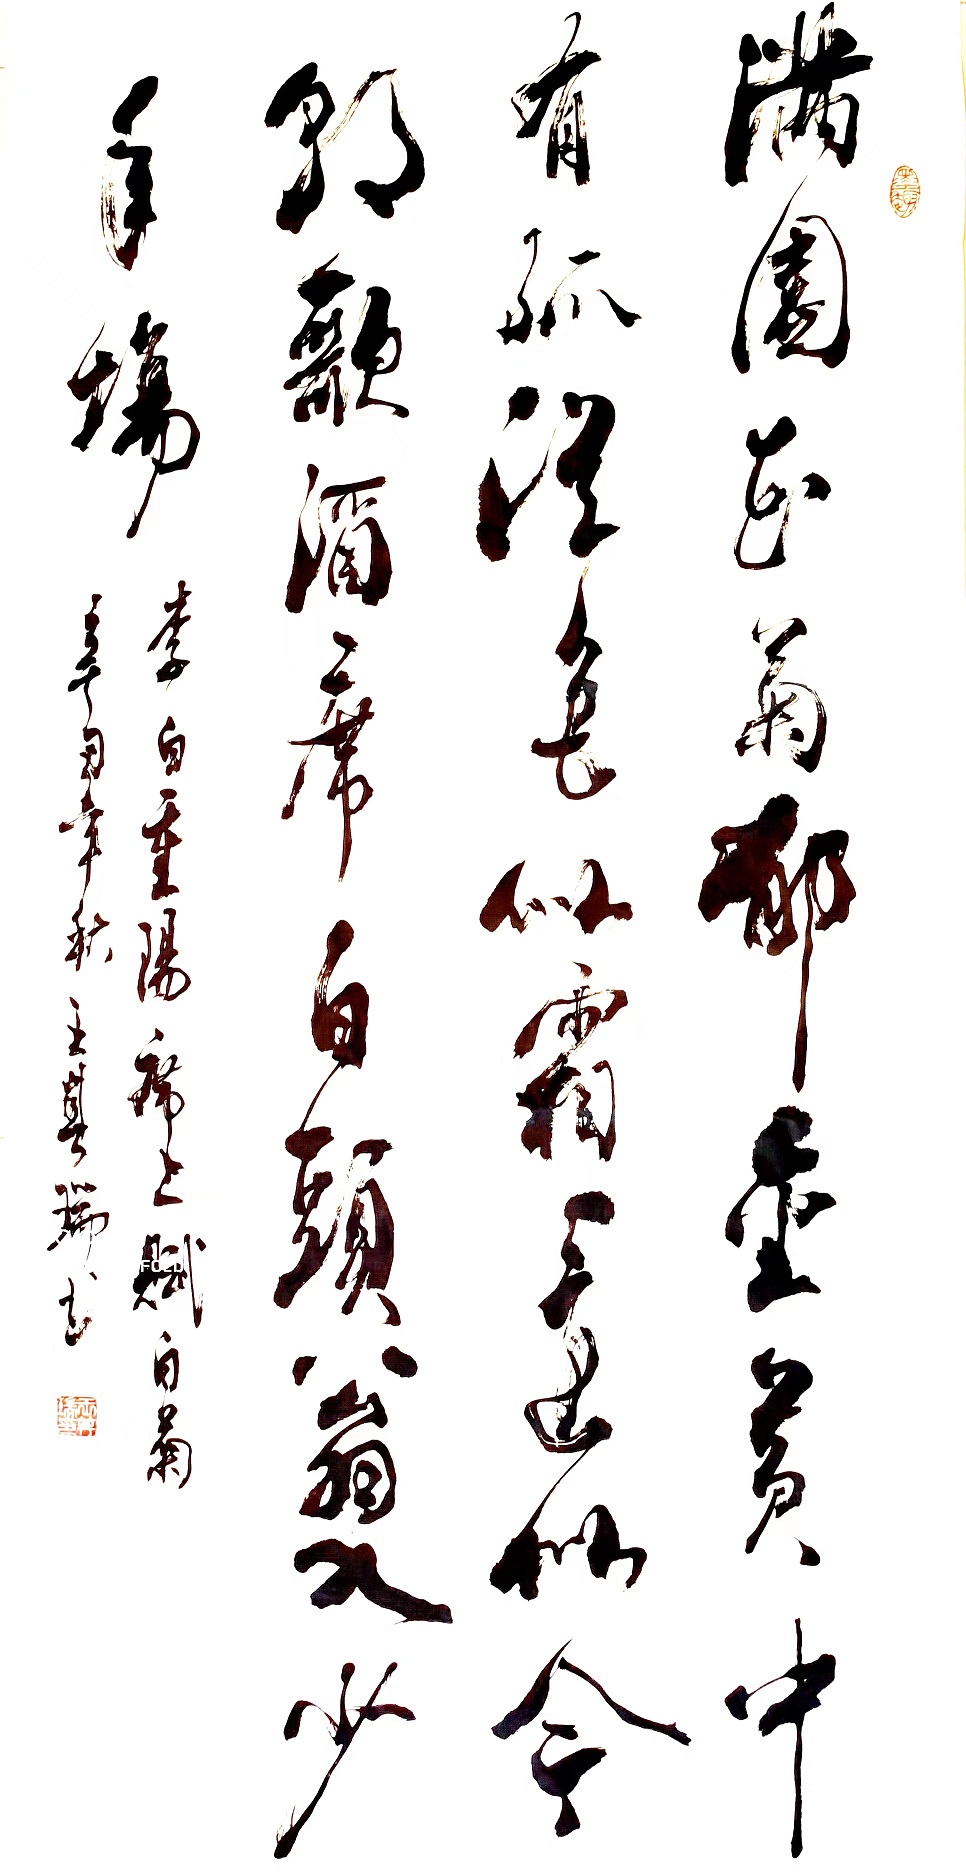 滿園花菊郁金黄中
有孤叢色似霜還似今
朝歌酒席白頭翁入少
年場
李白重陽席上賦白菊
年秋 王 瑞书